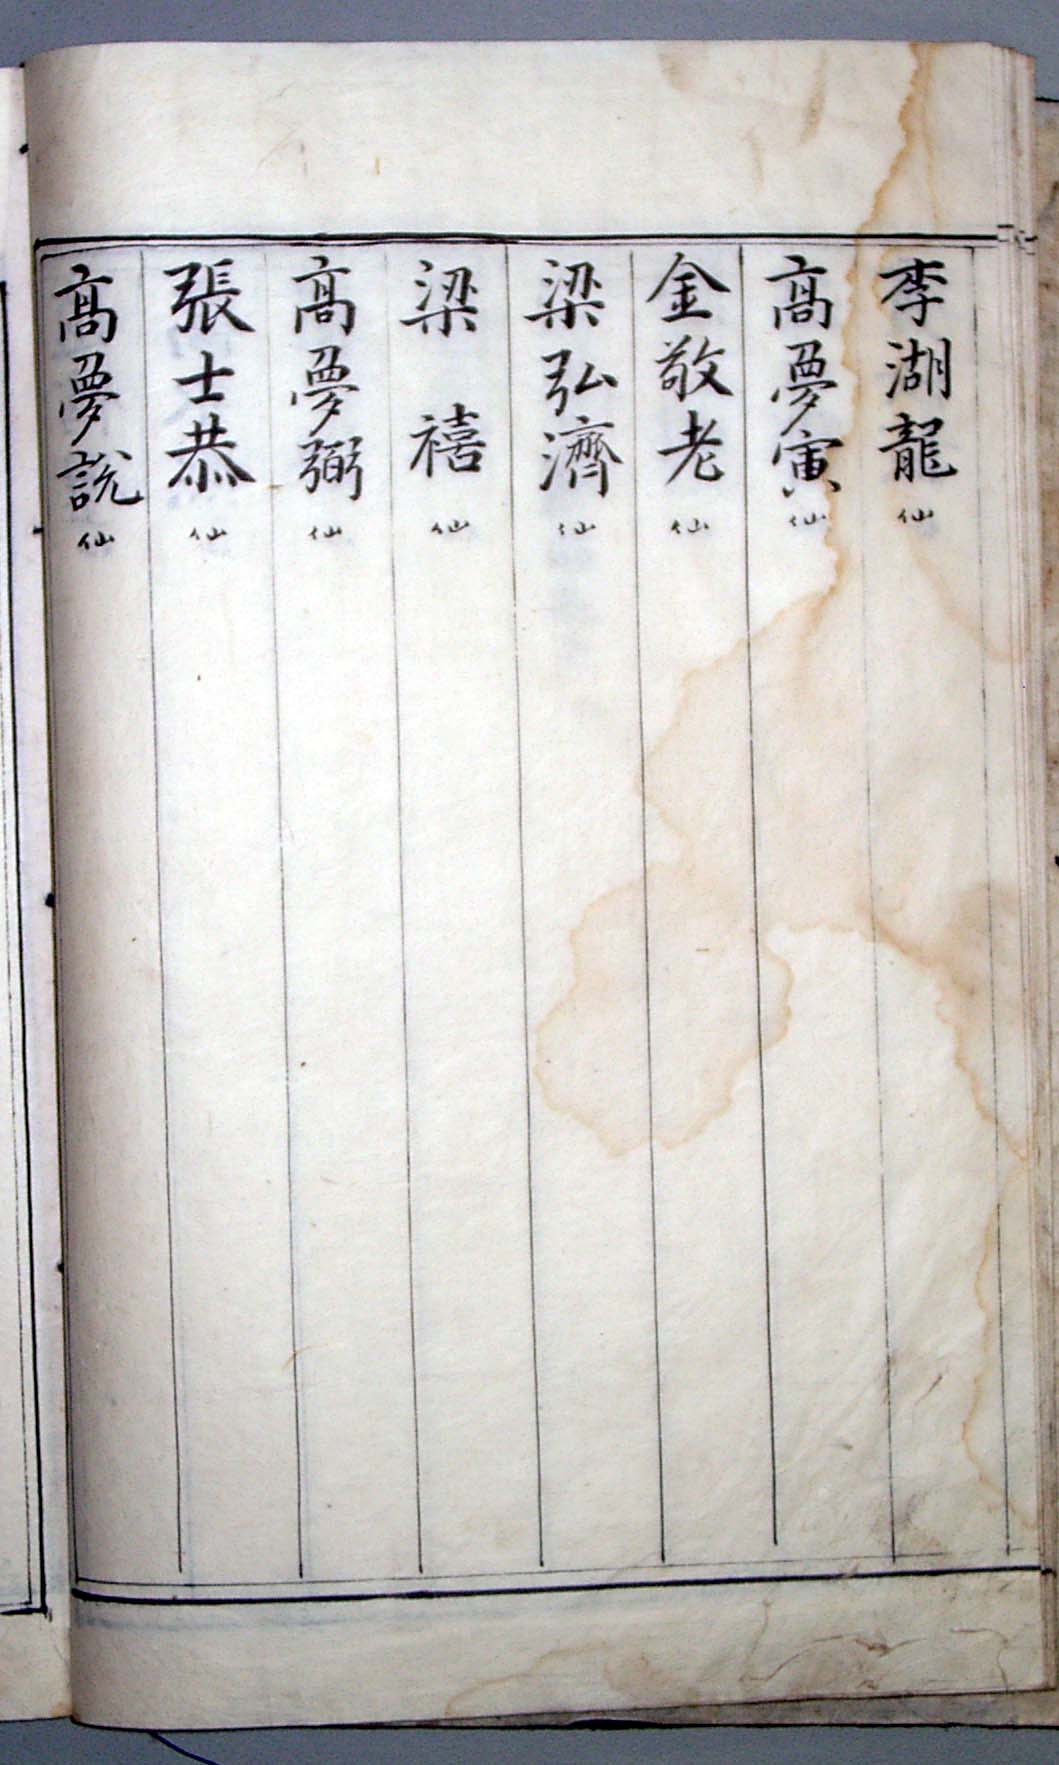 李湖龍仙
高夢寅仙
金敬老仙
梁弘濟仙
梁禧仙
高夢弼仙
張士恭仙
高夢說仙